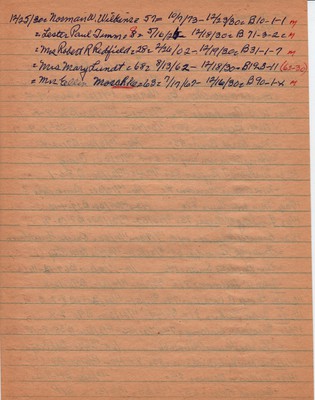 12/25/30 = Norman W. Wilkins = 57 = 10/7/73 - 12/23/30 = B 10-1-1 M
= Lester Paul Timm = 8 = 5/6/22 - 12/18/30 = B 71-3-2 = M
= Mrs Robert R Redfield = 28 = 2/20/02 - 12/19/30 = B 31-1-7 M
= Mrs Mary Lundt = 68 = 9/13/62 - 12/18/30 = B 193-11 (63-30)
= Mrs Ellen = 63 = 7/17/67 - 12/16/30 = B 90-1-x M